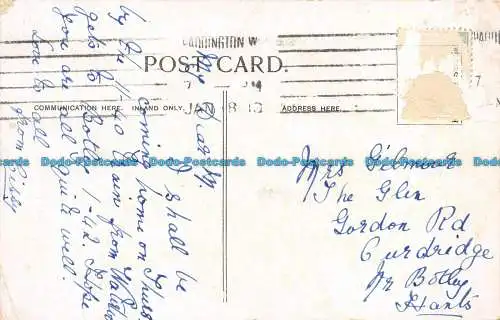 PADDINGTON W
POST CARD.
COMMUNICATION HERE. INLAND ONLY.
ADDRESS HERE.
My Dear M.
I shall be
coming home on Thurs
by the 11-40 train from Water
gets to Botley 1-42. Hope
you are all quite well.
Love to all
from
Mrs Gilmour
The Glen
Gordon Rd
Curdridge
Nr Botley
Hants
Dodo-Postcards Dodo-Postcards Dodo-Postcards Dodo-Postcards Dodo-Postcards